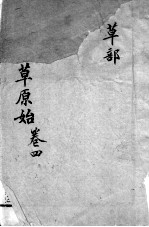 草部
草原始卷四